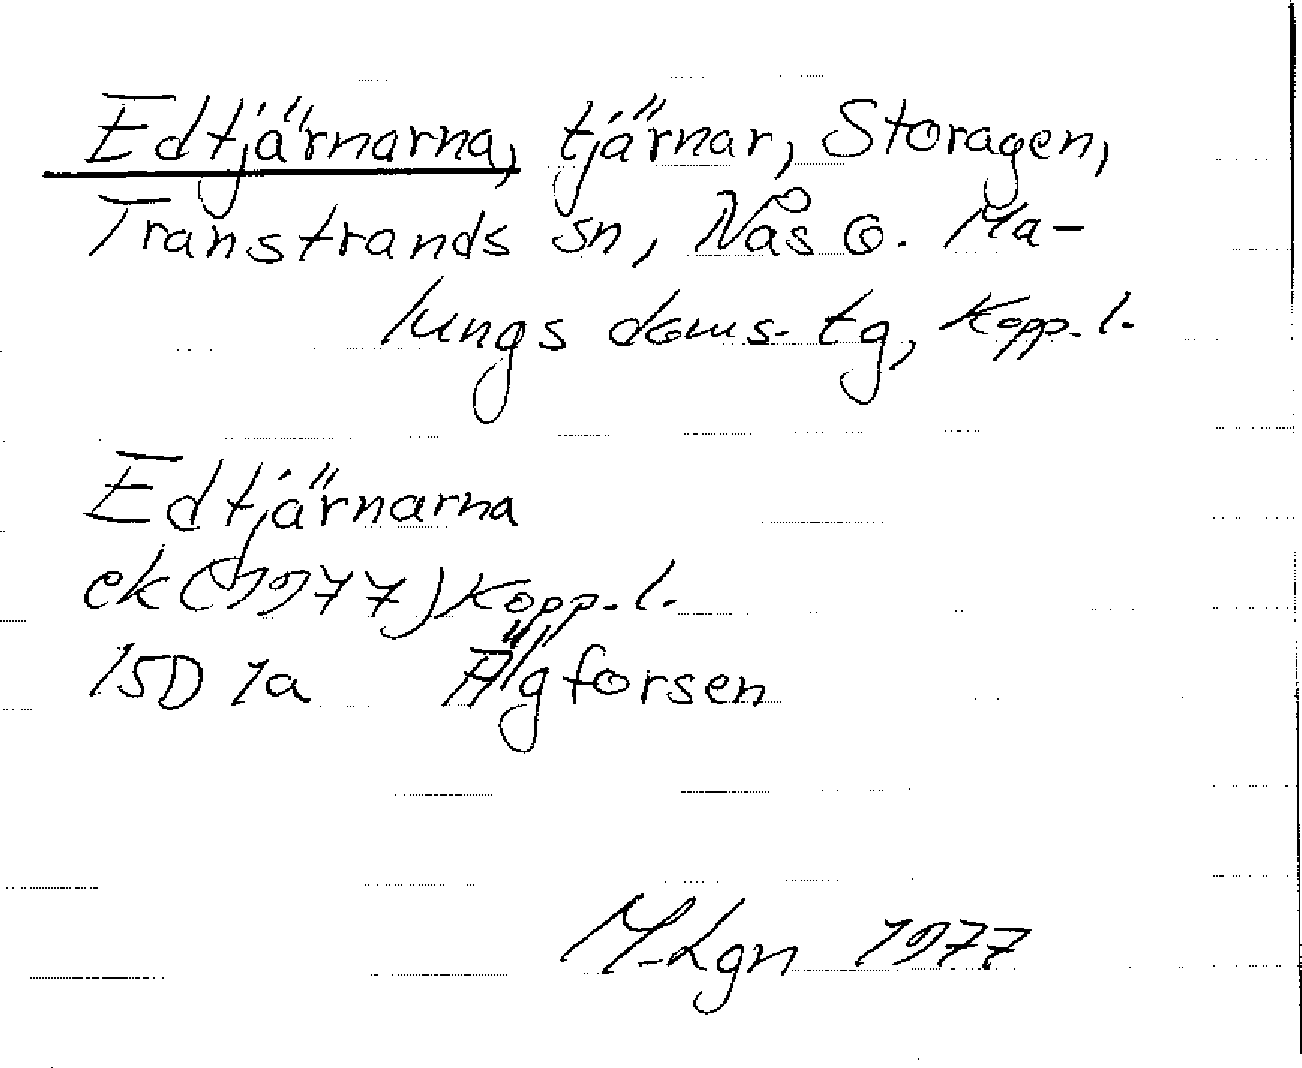 Edtjärnarna, tjärnar, Storagen,
Transtrands sn, Nås o. Ma-
lungs doms. tg, Kopp. l.
Edtjärnarna
ek (1977) Kopp. l.
15D 1a Älgforsen
M. Lgn 1977